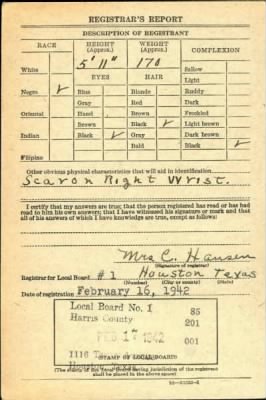 REGISTRAR'S REPORT
DESCRIPTION OF REGISTRANT
RACE HEIGHT (Approx.) WEIGHT (Approx.) COMPLEXION
White 5' 11" 170 Sallow
EYES HAIR Light
Negro ✓ Blue Blonde Ruddy
Gray Red Dark
Oriental Hazel Brown Freckled
Brown Black ✓ Light brown
Indian Black ✓ Gray Dark brown
Bald Black ✓
Filipino
Other obvious physical characteristics that will aid in identification
Scar on Right Wrist.
I certify that my answers are true; that the person registered has read or has had
read to him his own answers; that I have witnessed his signature or mark and that
all of his answers of which I have knowledge are true, except as follows:
Mrs C. Hansen
(Signature of registrar)
Registrar for Local Board #1 Houston Texas
(Number) (City or county) (State)
Date of registration February 16, 1942
Local Board No. 1 85
Harris County 201
FEB 17 1942 001
1116
Houston
(STAMP OF LOCAL BOARD)
(The stamp of the Local Board having jurisdiction of the registrant
shall be placed in the above space)